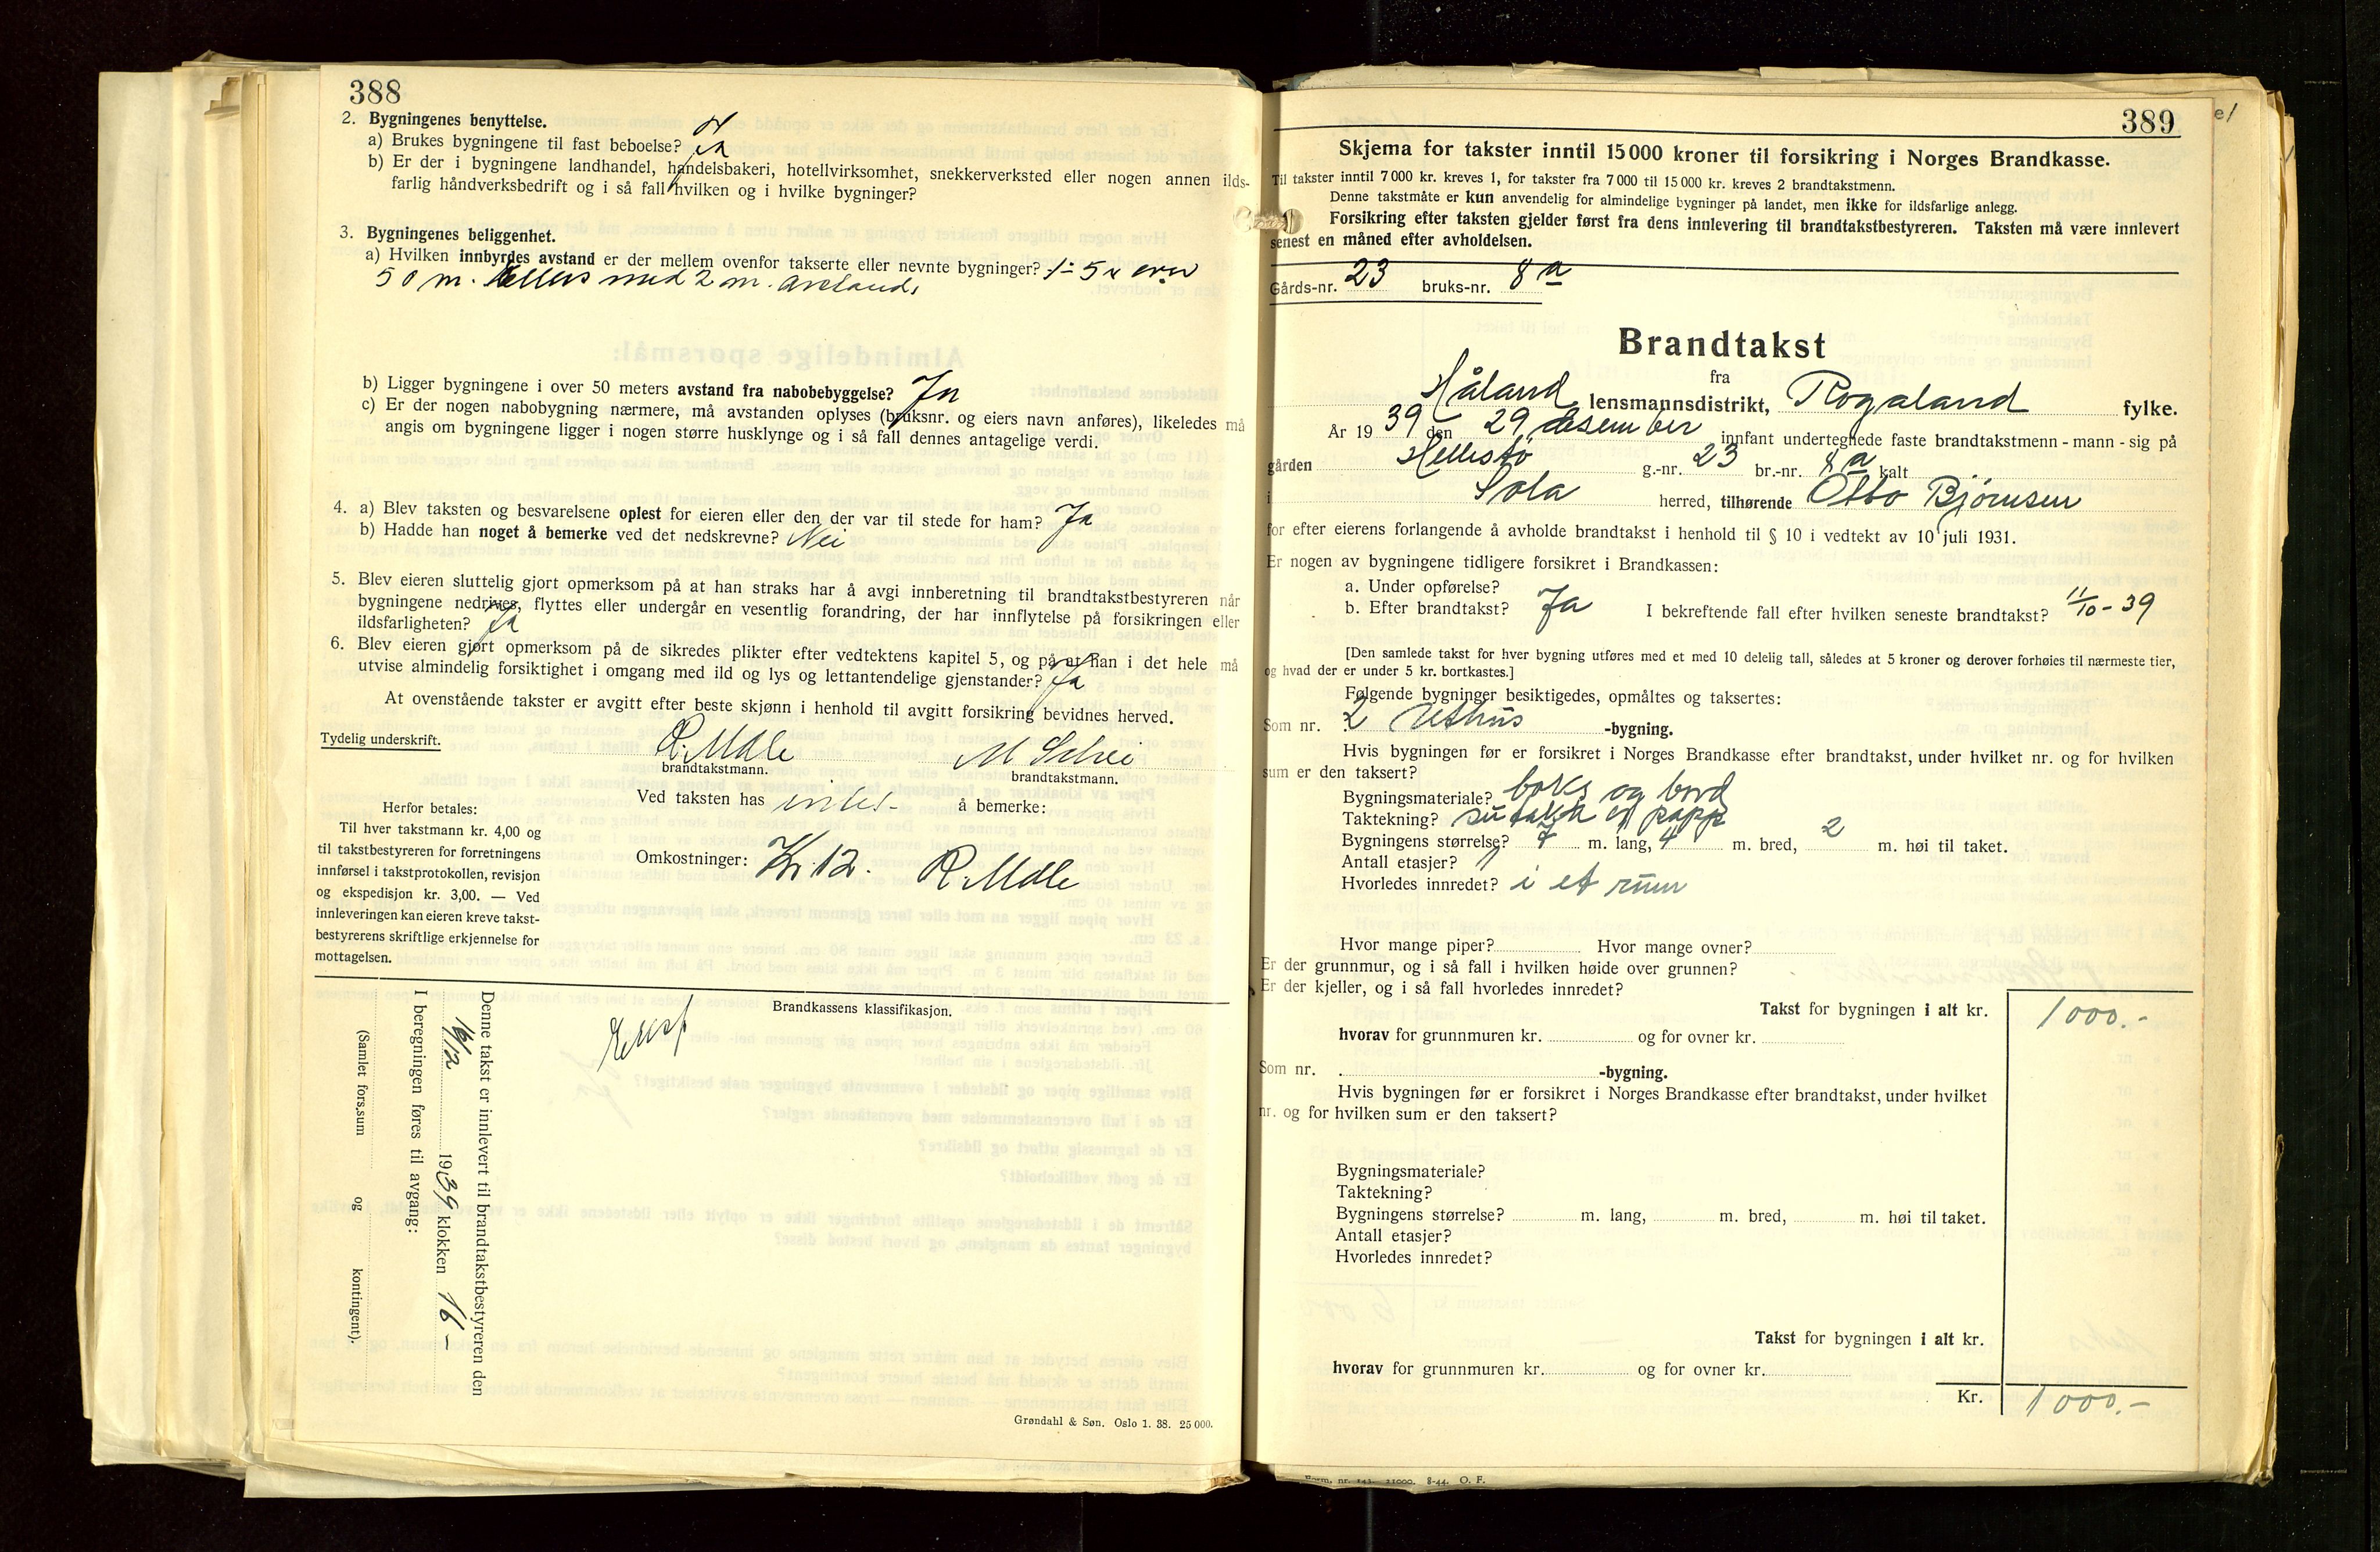 388
2. Bygningenes benyttelse.
a) Brukes bygningene til fast beboelse? Ja
b) Er der i bygningene landhandel, handelsbakeri, hotellvirksomhet, snekkerverksted eller nogen annen ilds-
farlig håndverksbedrift og i så fall hvilken og i hvilke bygninger?
3. Bygningenes beliggenhet.
a) Hvilken innbyrdes avstand er der mellem ovenfor takserte eller nevnte bygninger? 1 - 5 over
50 m. Ellers med 2 m. avstand
b) Ligger bygningene i over 50 meters avstand fra nabobebyggelse? Ja
c) Er der nogen nabobygning nærmere, må avstanden oplyses (bruksnr. og eiers navn anføres), likeledes må
angis om bygningene ligger i nogen større husklynge og i så fall dennes antagelige verdi.
4. a) Blev taksten og besvarelsene oplest for eieren eller den der var til stede for ham? Ja
b) Hadde han noget å bemerke ved det nedskrevne? Nei
5. Blev eieren sluttelig gjort opmerksom på at han straks har å avgi innberetning til brandtakstbestyreren når
bygningene nedrives, flyttes eller undergår en vesentlig forandring, der har innflytelse på forsikringen eller
ildsfarligheten? Ja
6. Blev eieren gjort opmerksom på de sikredes plikter efter vedtektens kapitel 5, og på at han i det hele må
utvise almindelig forsiktighet i omgang med ild og lys og lettantendelige gjenstander? Ja
At ovenstående takster er avgitt efter beste skjønn i henhold til avgitt forsikring bevidnes herved.
Tydelig underskrift. R. Molle M Schei
brandtakstmann. brandtakstmann.
Ved taksten has intet- å bemerke:
Herfor betales:
Til hver takstmann kr. 4,00 og
til takstbestyreren for forretningens
innførsel i takstprotokollen, revisjon
og ekspedisjon kr. 3,00. — Ved
innleveringen kan eieren kreve takst-
bestyrerens skriftlige erkjennelse for
mottagelsen.
Omkostninger: Kr. 12. R. Molle
Brandkassens klassifikasjon.
Denne takst er innlevert til brandtakstbestyreren den
16/12 1939 klokken 16 -
I beregningen føres til avgang:
(Samlet fors.sum og kontingent).
Grøndahl & Søn. Oslo 1. 38. 25 000.
389
Skjema for takster inntil 15 000 kroner til forsikring i Norges Brandkasse.
Til takster inntil 7 000 kr. kreves 1, for takster fra 7 000 til 15 000 kr. kreves 2 brandtakstmenn.
Denne takstmåte er kun anvendelig for almindelige bygninger på landet, men ikke for ildsfarlige anlegg.
Forsikring efter taksten gjelder først fra dens innlevering til brandtakstbestyreren. Taksten må være innlevert
senest en måned efter avholdelsen.
Gårds-nr. 23 bruks-nr. 8 a
Brandtakst
fra
Håland lensmannsdistrikt, Rogaland fylke.
År 1939 den 29 desember innfant undertegnede faste brandtakstmenn - mann - sig på
gården Hellestø g.-nr. 23 br.-nr. 8 a kalt
i Sola herred, tilhørende Otto Bjørnsen
for efter eierens forlangende å avholde brandtakst i henhold til § 10 i vedtekt av 10 juli 1931.
Er nogen av bygningene tidligere forsikret i Brandkassen:
a. Under opførelse?
b. Efter brandtakst? Ja I bekreftende fall efter hvilken seneste brandtakst? 11/10 - 39
[Den samlede takst for hver bygning utføres med et med 10 delelig tall, således at 5 kroner og derover forhøies til nærmeste tier,
og hvad der er under 5 kr. bortkastes.]
Følgende bygninger besiktigedes, opmåltes og taksertes:
Som nr. 2 Uthus -bygning.
Hvis bygningen før er forsikret i Norges Brandkasse efter brandtakst, under hvilket nr. og for hvilken
sum er den taksert?
Bygningsmateriale? og bord
Taktekning? papp
Bygningens størrelse? 7 m. lang, 4 m. bred, 2 m. høi til taket.
Antall etasjer? 1
Hvorledes innredet? i et rum
Hvor mange piper? Hvor mange ovner?
Er der grunnmur, og i så fall i hvilken høide over grunnen?
Er der kjeller, og i så fall hvorledes innredet?
Takst for bygningen i alt kr. 1000.-
hvorav for grunnmuren kr. og for ovner kr.
Som nr. -bygning.
Hvis bygningen før er forsikret i Norges Brandkasse efter brandtakst, under hvilket
nr. og for hvilken sum er den taksert?
Bygningsmateriale?
Taktekning?
Bygningens størrelse? m. lang, m. bred, m. høi til taket.
Antall etasjer?
Hvorledes innredet?
Takst for bygningen i alt kr.
hvorav for grunnmuren kr. og for ovner kr.
Kr. 1000.-